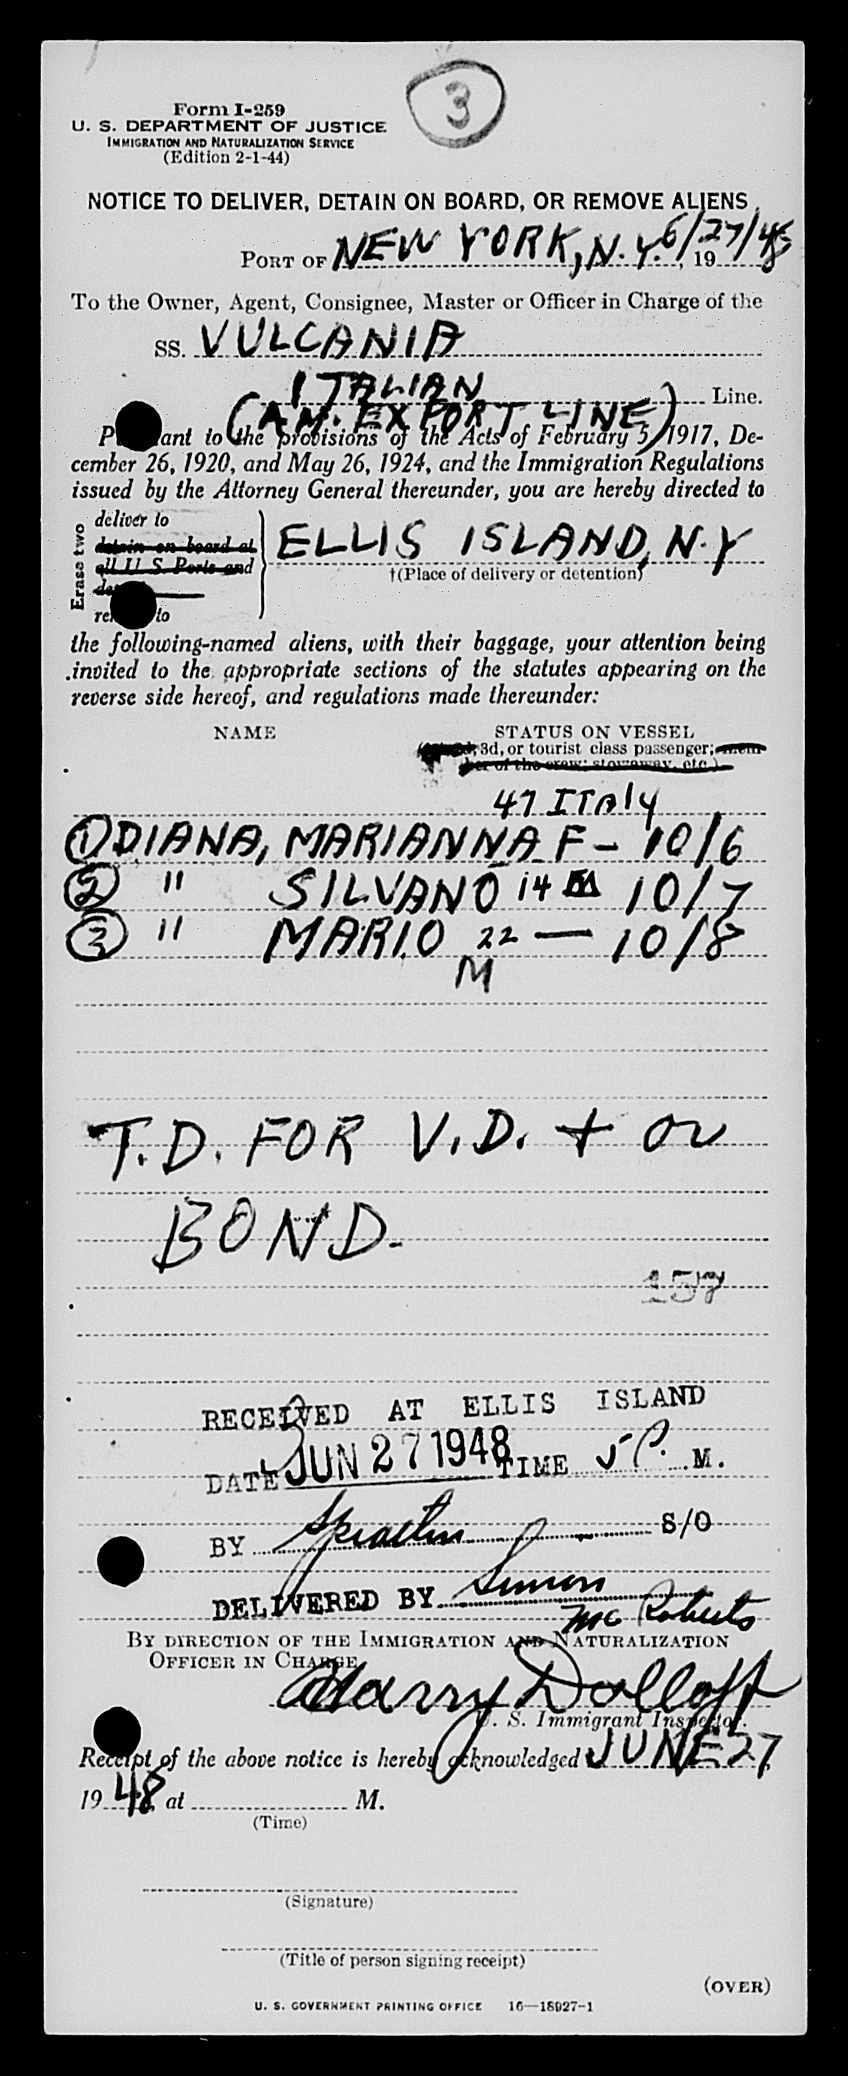 3
Form I-259
U. S. DEPARTMENT OF JUSTICE
IMMIGRATION AND NATURALIZATION SERVICE
(Edition 2-1-44)
NOTICE TO DELIVER, DETAIN ON BOARD, OR REMOVE ALIENS
PORT OF NEW YORK, N.Y. 6/27/48, 19
To the Owner, Agent, Consignee, Master or Officer in Charge of the
SS. VULCANIA
ITALIAN Line.
(AM. EXPORT LINE)
Pursuant to the provisions of the Acts of February 5, 1917, De-
cember 26, 1920, and May 26, 1924, and the Immigration Regulations
issued by the Attorney General thereunder, you are hereby directed to
Erase two
deliver to
detain on board at
all U S. Ports and
ELLIS ISLAND, N.Y
†(Place of delivery or detention)
to
the following-named aliens, with their baggage, your attention being
invited to the appropriate sections of the statutes appearing on the
reverse side hereof, and regulations made thereunder:
NAME STATUS ON VESSEL
3d, or tourist class passenger; mem-
ber of the crew; stowaway, etc.)
47 ITALY
① DIANA, MARIANNA F - 10/6
② " SILVANO 14 M 10/7
③ " MARIO 22 — 10/8
M
T.D. FOR V.D. + or
BOND.
157
RECEIVED AT ELLIS ISLAND
3
DATE JUN 27 1948 TIME 5 P. M.
BY S/O
DELIVERED BY Simon
McRoberts
BY DIRECTION OF THE IMMIGRATION AND NATURALIZATION
OFFICER IN CHARGE
Harry Dolloff
U. S. Immigrant Inspector.
Receipt of the above notice is hereby acknowledged JUNE 27,
1948, at M.
(Time)
(Signature)
(Title of person signing receipt)
(OVER)
U. S. GOVERNMENT PRINTING OFFICE 16—18927-1